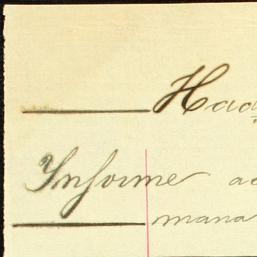 Had
Informe ac
mana